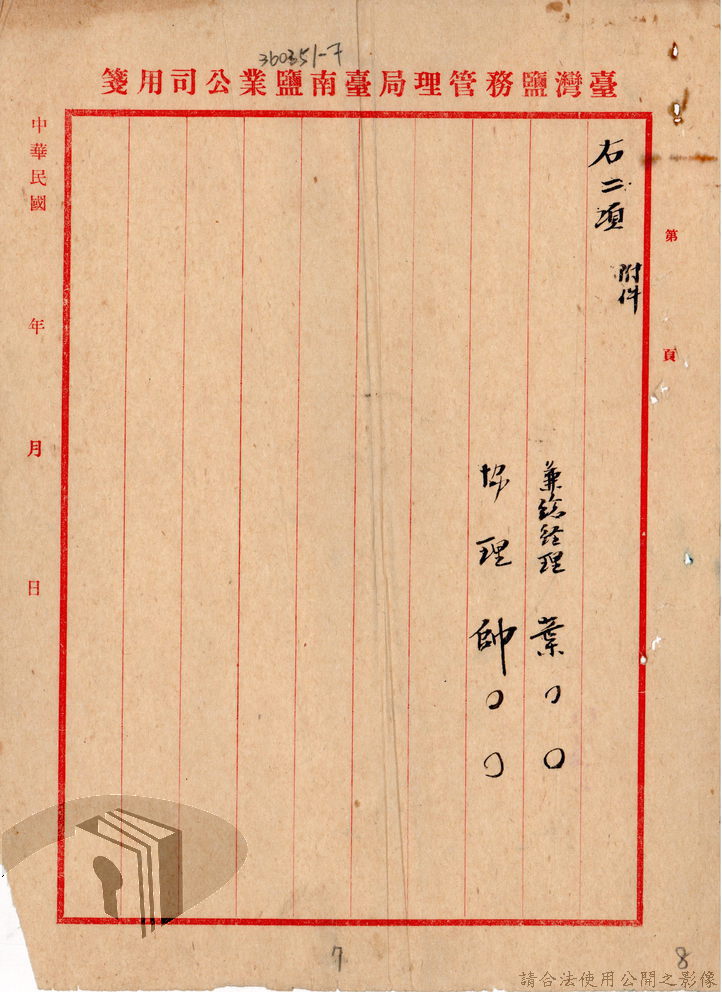 360351-7
臺灣鹽務管理局臺南鹽業公司用箋
第 頁
右二項 附件
兼總経理 葉〇〇
協理 帥〇〇
中華民國 年 月 日
7
8
請合法使用公開之影像